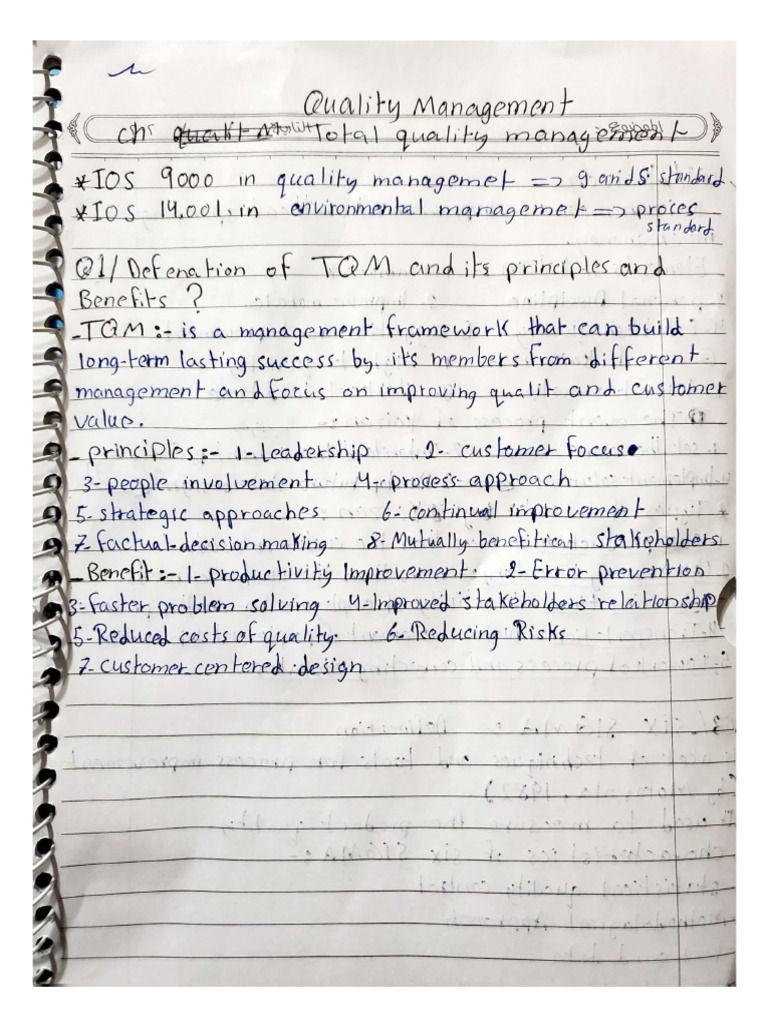 Quality Management
ch: Total quality management
*IOS 9000 in quality managemet => 9 and 5 standard
*IOS 14.001. in environmental managemet => proces
standard
Q1/ Defenation of TQM and its principles and
Benefits ?
-TQM:- is a management framework that can build
long-term lasting success by its members from different
management and focus on improving qualit and customer
value.
- principles:- 1- leadership 2- customer focus
3- people involvement 4- process approach
5- strategic approaches 6- continual improvement
7- factual-decision making 8- Mutually benefitical stakeholders
- Benefit:- 1- productivity Improvement. 2- Error prevention
3- faster problem solving. 4- Improved stakeholders relationship
5- Reduced costs of quality. 6- Reducing Risks
7- customer centered design